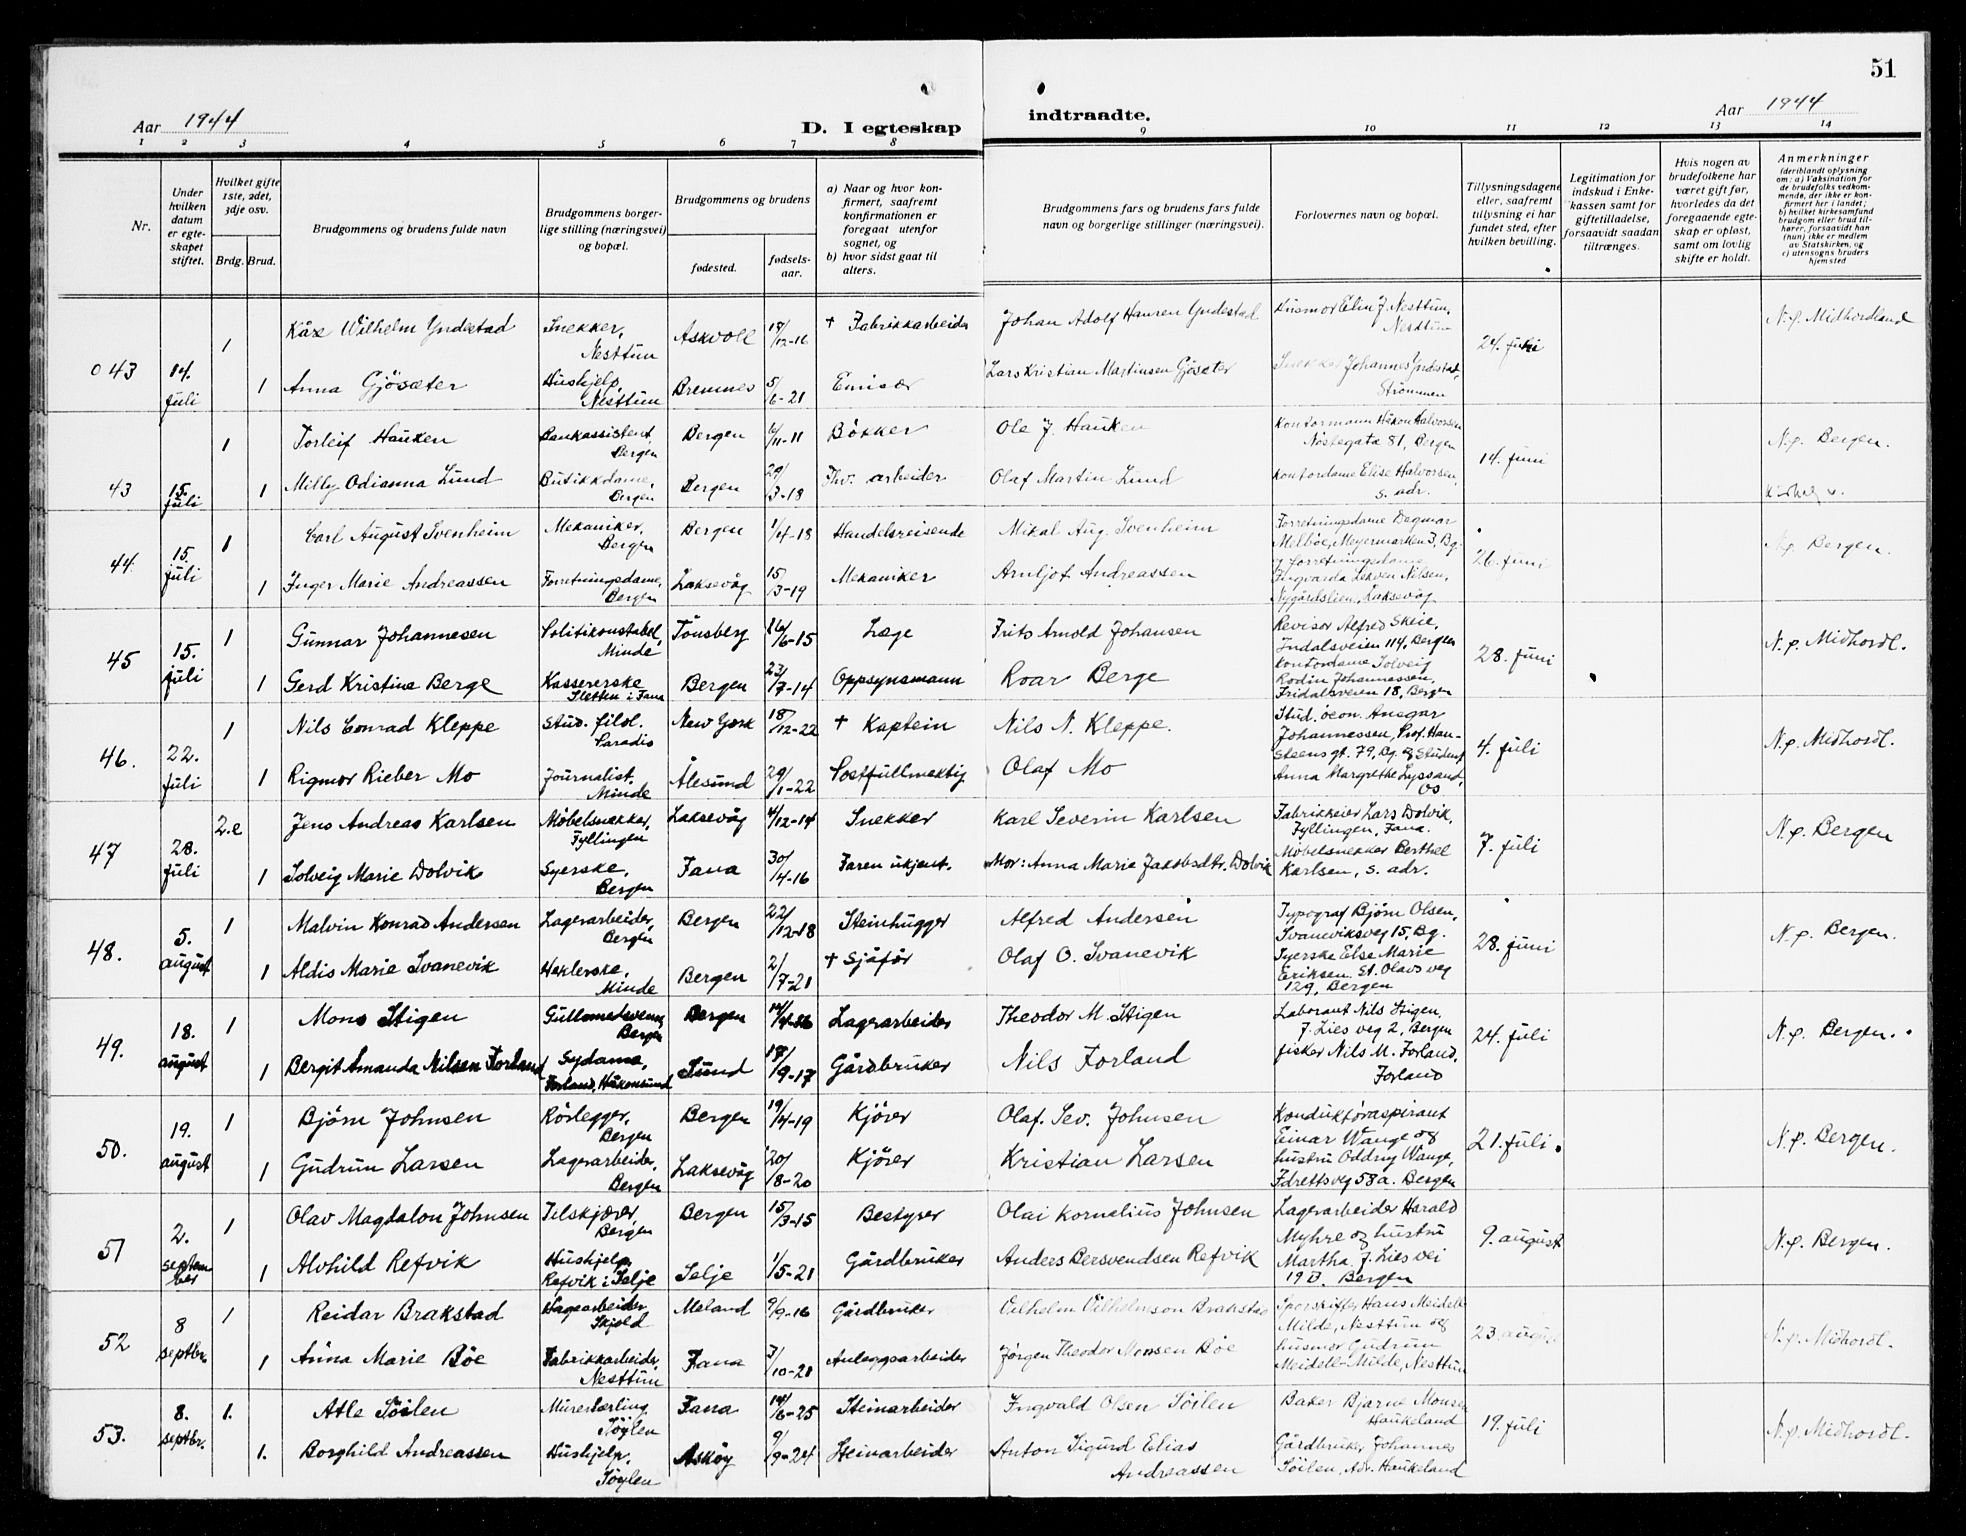 51
Aar 1944
D. I egteskap
indtraadte.
Aar 1944
1 2 3 4 5 6 7 8 9 10 11 12 13 14
Nr.
Under hvilken datum er egteskapet stiftet.
Hvilket gifte 1ste, 2det, 3dje osv.
Brdg. Brud.
Brudgommens og brudens fulde navn
Brudgommens borgerlige stilling (næringsvei) og bopæl.
Brudgommens og brudens
fødested.
fødselsaar.
a) Naar og hvor konfirmert, saafremt konfirmationen er foregaat utenfor sognet, og
b) hvor sidst gaat til alters.
Brudgommens fars og brudens fars fulde navn og borgerlige stillinger (næringsvei).
Forlovernes navn og bopæl.
Tillysningsdagene eller, saafremt tillysning ei har fundet sted, efter hvilken bevilling.
Legitimation for indskud i Enkekassen samt for giftetilladelse, forsaavidt saadan tiltrænges.
Hvis nogen av brudefolkene har været gift før, hvorledes da det foregaaende egteskap er opløst, samt om lovlig skifte er holdt.
Anmerkninger
(deriblandt oplysning om: a) Vaksination for de brudefolks vedkommende, der ikke er konfirmert her i landet;
b) hvilket kirkesamfund brudgom eller brud tilhører, forsaavidt han (hun) ikke er medlem av Statskirken, og
c) utensogns bruders hjemsted
043 14. juli
1 Kåre Wilhelm Yndestad Snekker, Nesttun Askvoll /12-16 + Fabrikkarbeider Johan Adolf Hansen Yndestad Husmor Elin J. Nesttun, Nesttun 24. juni N.p. Midhordland
1 Anna Gjösæter Hushjelp, Nesttun Bremnes 5/6-21 Emisær Lars Kristian Martinsen Gjösæter Snekker Johannes Yndestad, Strømmen
43 15. juli
1 Torleif Hauken Bankassistent Bergen Bergen 6/11-11 Bökker Ole J. Hauken Kontormann Håkon Halvorsen Nøstegata 81, Bergen 14. juni N.p. Bergen.
1 Milly Odianna Lund Butikkdame, Bergen Bergen 29/3-18 Thv. arbeider Olaf Martin Lund Kontordame Elise Halvorsen, s. adr.
44. 15. juli
1 Carl August Svenheim Mekaniker, Bergen Bergen 1/4-18 Handelsreisende Mikal Aug. Svenheim Forretningsdame Dagmar Melbøe, Meyermarken 3, Bg. 26. juni N.p. Bergen.
1 Inger Marie Andreassen Forretningsdame, Bergen Laksevåg 15/3-19 Mekaniker Arnljot Andreassen og Forretningsdame Ingvarda Lekven Nilsen, Nygårdslien, Laksevåg
45 15. juli
1 Gunnar Johannesen Politikonstabel, Minde Tönsberg 16/6-15 Læge Frits Arnold Johansen Revisor Alfred Skeie, Indalsveien 114, Bergen 28. juni N.p. Midhordl.
1 Gerd Kristine Berge Kassererske Sletten i Fana Bergen 23/7-14 Oppsynsmann Roar Berge Kontordame Solveig Rodin Johannessen, Fridalsveien 18, Bergen
46. 22. juli
1 Nils Conrad Kleppe Stud. filol. Paradis New York 18/12-22 + Kaptein Nils N. Kleppe. Stud. öcon. Ansgar Johannessen, Prof. Hansteens gt. 79, Bg. og Student 4. juli N.p. Midhordl.
1 Rigmor Rieber Mo Journalist. Minde Ålesund 29/1-22 Postfullmektig Olaf Mo Anna Margrethe Lyssand, Os
47 28. juli
2.e Jens Andreas Karlsen Møbelsnekker, Fyllingen Laksevåg 4/12-14 Snekker Karl Severin Karlsen Fabrikkeier Lars Dolvik, Fyllingen, Fana. 7. juli N.p. Bergen
1 Solveig Marie Dolvik Syerske, Bergen Fana 30/4-16 Faren ukjent. Mor: Anna Marie Jakobsdtr. Dolvik Møbelsnekker Berthel Karlsen, s. adr.
48. 5. august
1 Malvin Konrad Andersen Lagerarbeider, Bergen Bergen 22/12-18 Steinhugger Alfred Andersen Typograf Bjørn Olsen, Svaneviksveg 15, Bg. 28. juni N.p. Bergen.
1 Aldis Marie Svanevik Heklerske, Minde Bergen 2/7-21 + Sjåfør Olaf O. Svanevik Syerske Else Marie Eriksen. St. Olavs veg 129, Bergen
49. 18. august
1 Mons Stigen Gullsmedsvenn, Bergen Bergen Lagerarbeider Theodor M. Stigen Laborant Nils Stigen, J. Lies veg 2, Bergen 24. juli N.p. Bergen.
1 Bergit Amanda Nilsen Forland Sydame, Forland, Håkonsund Sund 17/9-17 Gårdbruker Nils Forland fisker Nils M. Forland, Forland
50. 19. august
1 Bjørn Johnsen Rörlegger, Bergen Bergen 19/4-19 Kjører Olaf. Sev. Johnsen Konduktøraspirant Einar Wange og 21. juli. N.p. Bergen.
1 Gudrun Larsen Lagerarbeider, Bergen Laksevåg 20/8-20 Kjører Kristian Larsen hustru Oddny Wange, Idrettsveg 58a. Bergen
51 2. september
1 Olav Magdalon Johnsen Pelskjærer, Bergen Bergen 15/3-15 Bestyrer Olai Kornelius Johnsen Lagerarbeider Harald Myhre og hustru 9. august N.p. Bergen.
1 Alvhild Refvik Hushjelp Refvik i Selje Selje 1/5-21 Gårdbruker Anders Bersvendsen Refvik Martha J. Lies vei 19 B. Bergen
52 8 septbr.
1 Reidar Brakstad Hagearbeider Skjold Meland 9/9-16 Gårdbruker Vilhelm Vilhelmson Brakstad Hans Meidell Milde, Nesttun og 23. august N.p. Midhordl.
1 Anna Marie Böe Fabrikkarbeider, Nesttun Fana 3/10-21 Anleggsarbeider Jörgen Theodor Monsen Böe husmor Gudrun Meidell-Milde, Nesttun
53. 8. septbr.
1. Atle Söilen Murerlærling Söylen Fana 14/6-25 Steinarbeider Ingvald Olsen Söilen Baker Bjarne Monsen Haukeland 19. juli N.p. Midhordl.
1. Borghild Andreassen Hushjelp, Söylen Askøy 9/9-24 Steinarbeider Anton Sigurd Elias Andreassen Gårdbruker Johannes Söilen, Adr. Haukeland